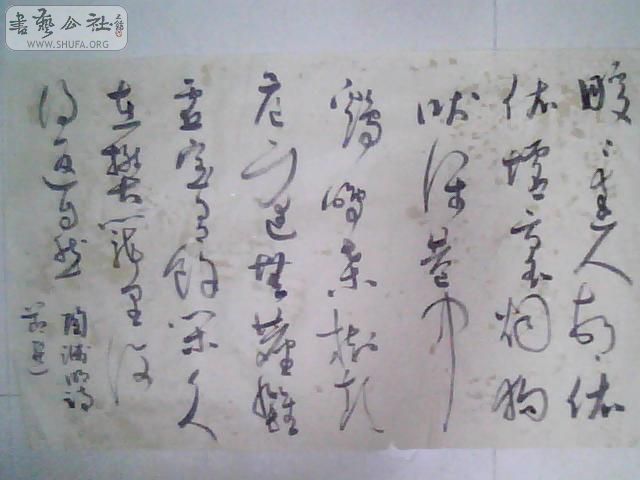 書藝公社
WWW.SHUFA.ORG
暧〻遠人村依
依墟里烟狗
吠深巷中
鷄鳴桑樹顛
户庭無塵雜
虚室有餘閑久
在樊籠里復
得返自然
陶淵明詩